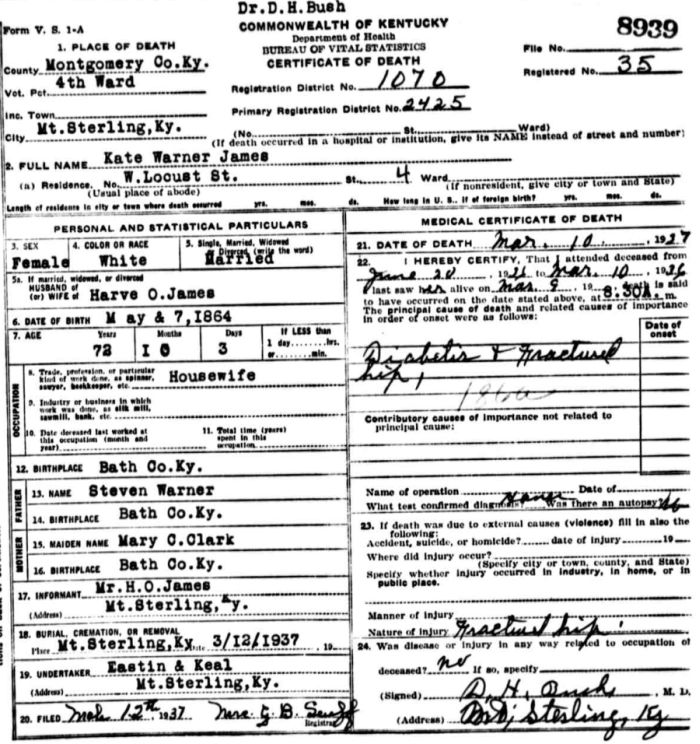 Dr.D.H.Bush
Form V. S. 1-A
COMMONWEALTH OF KENTUCKY
Department of Health
BUREAU OF VITAL STATISTICS
CERTIFICATE OF DEATH
File No. 8939
Registered No. 35
1. PLACE OF DEATH
County Montgomery Co.Ky.
Vot. Pct. 4th Ward
Inc. Town
City Mt.Sterling,Ky.
Registration District No. 1070
Primary Registration District No. 2425
(No. St. Ward)
(If death occurred in a hospital or institution, give its NAME instead of street and number)
2. FULL NAME Kate Warner James
(a) Residence. No. W.Locust St. St., 4 Ward.
(Usual place of abode) (If nonresident, give city or town and State)
Length of residence in city or town where death occurred yrs. mos. ds. How long in U. S., if of foreign birth? yrs. mos. ds.
PERSONAL AND STATISTICAL PARTICULARS
3. SEX 4. COLOR OR RACE 5. Single, Married, Widowed
Divorced, (write the word)
Female White Married
5a. If married, widowed, or divorced
HUSBAND of
(or) WIFE of Harve O.James
6. DATE OF BIRTH M ay & 7,1864
7. AGE Years Months Days If LESS than
1 day......hrs.
or......min.
72 I 0 3
OCCUPATION
8. Trade, profession, or particular
kind of work done, as spinner,
sawyer, bookkeeper, etc. Housewife
9. Industry or business in which
work was done, as silk mill,
sawmill, bank, etc.
10. Date deceased last worked at
this occupation (month and
year)
11. Total time (years)
spent in this
occupation
12. BIRTHPLACE Bath Co.Ky.
FATHER
13. NAME Steven Warner
14. BIRTHPLACE Bath Co.Ky.
MOTHER
15. MAIDEN NAME Mary C.Clark
16. BIRTHPLACE Bath Co.Ky.
17. INFORMANT Mr.H.O.James
(Address) Mt.Sterling,Ky.
18. BURIAL, CREMATION, OR REMOVAL
Place Mt.Sterling,Ky Date 3/12/1937 , 19
19. UNDERTAKER Eastin & Keal
(Address) Mt.Sterling,Ky.
20. FILED Mch 12th, 1937 Mrs G. B. Registrar
MEDICAL CERTIFICATE OF DEATH
21. DATE OF DEATH Mar. 10, 1937
22. I HEREBY CERTIFY, That I attended deceased from
June 20, 1936 to Mar. 10, 1936
I last saw her alive on Mar. 9, 19 death is said
to have occurred on the date stated above, at 8:30A. m.
The principal cause of death and related causes of importance
in order of onset were as follows:
Date of
onset
Diabetis & Fractured
hip,
Contributory causes of importance not related to
principal cause:
Name of operation Date of
What test confirmed diagnosis? Was there an autopsy? No
23. If death was due to external causes (violence) fill in also the
following:
Accident, suicide, or homicide? date of injury 19
Where did injury occur?
(Specify city or town, county, and State)
Specify whether injury occurred in industry, in home, or in
public place.
Manner of injury
Nature of injury Fractured hip
24. Was disease or injury in any way related to occupation of
deceased? no If so, specify
(Signed) D. H. Bush, M. D.
(Address) Mt Sterling, Ky